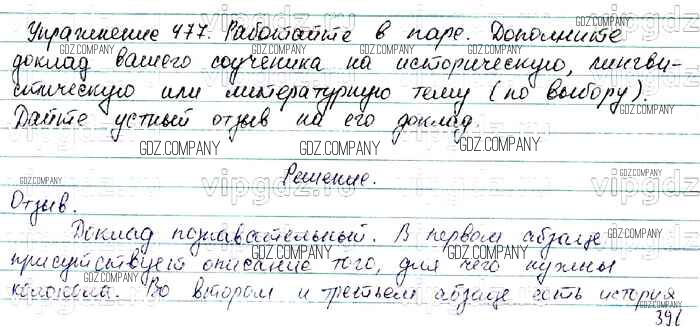 Упражнение 477. Работайте в паре. Дополните
доклад вашего соученика на историческую, лингви-
стическую или литературную тему (по выбору).
Дайте устный отзыв на его доклад.
Решение.
Отзыв.
Доклад познавательный. В первом абзаце
присутствует описание того, для чего нужны
колокола. Во втором и третьем абзаце есть история
391
GDZ.COMPANY
vipgdz.ru